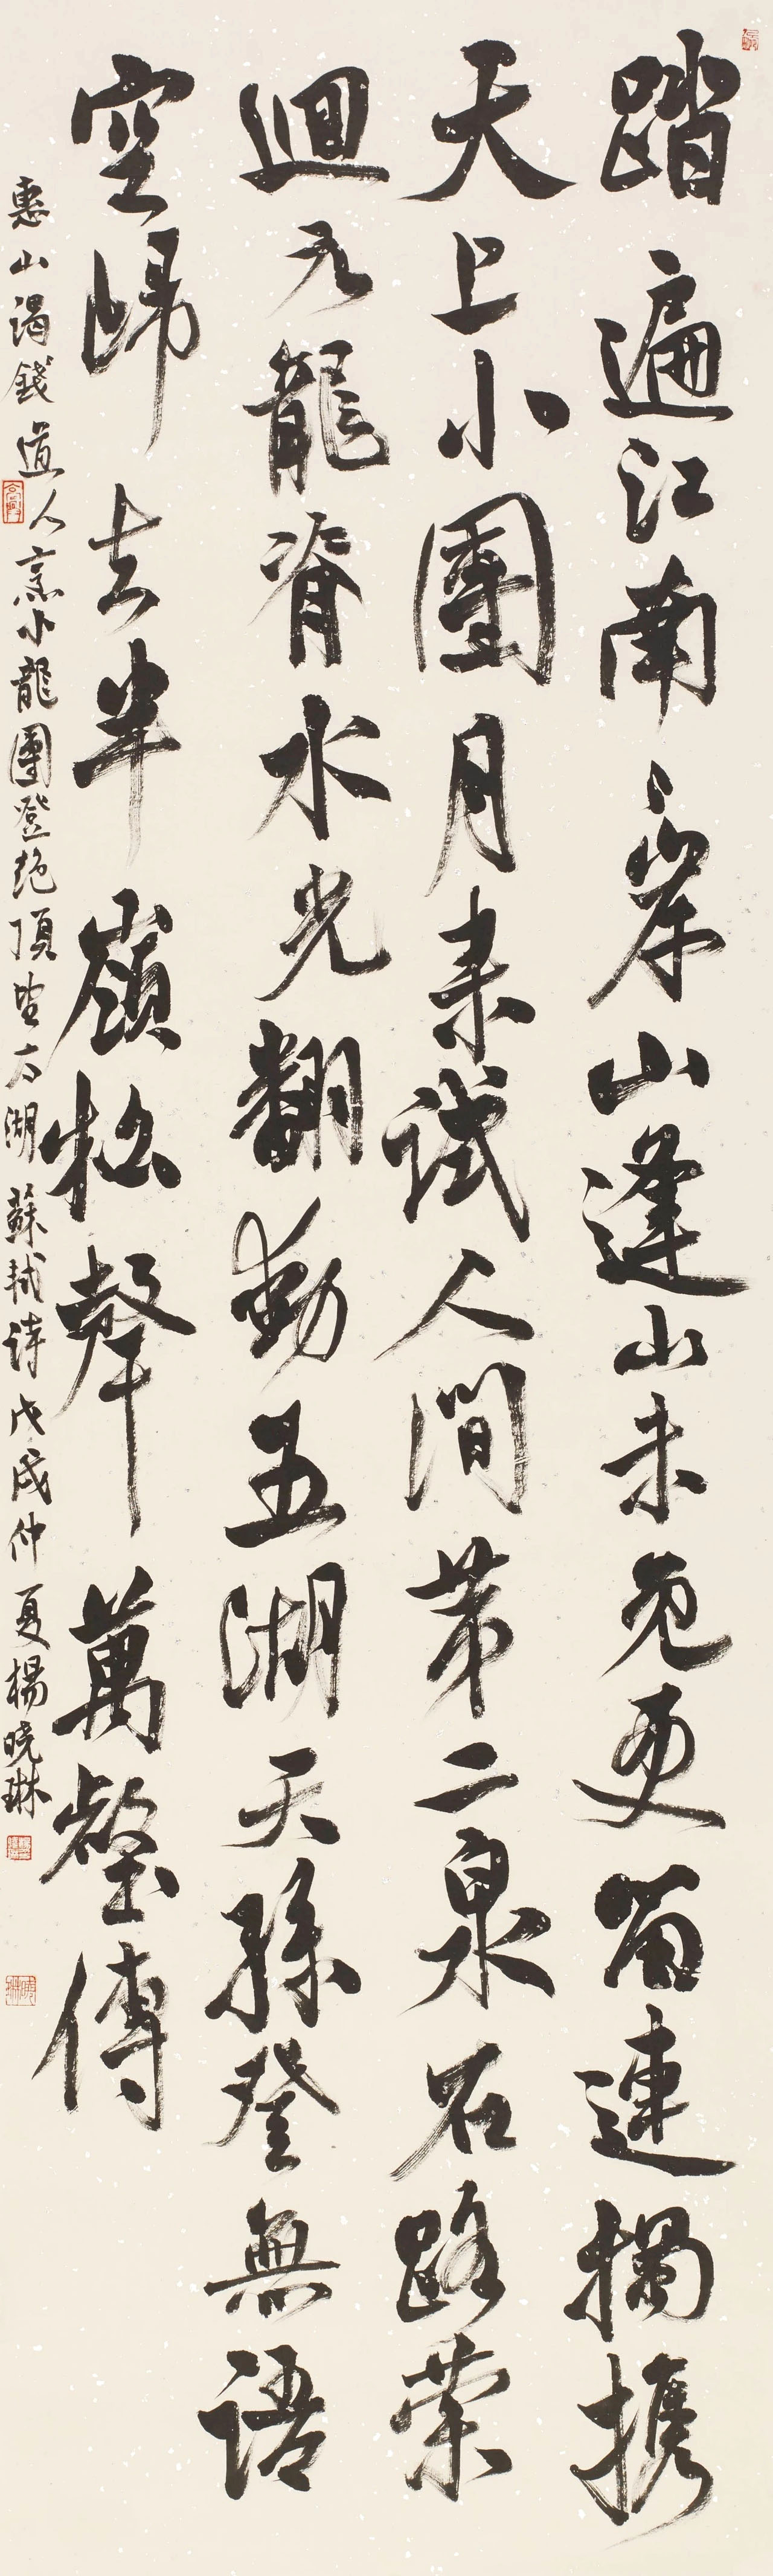 踏遍江南〻岸山逢山未免更留連獨携
天上小團月来試人間第二泉石路縈
迴九龍脊水光翻動五湖天孫登無語
空歸去半嶺松聲萬壑傳
惠山謁錢道人烹小龍團登絶頂望太湖蘇軾詩戊戌仲夏楊曉琳